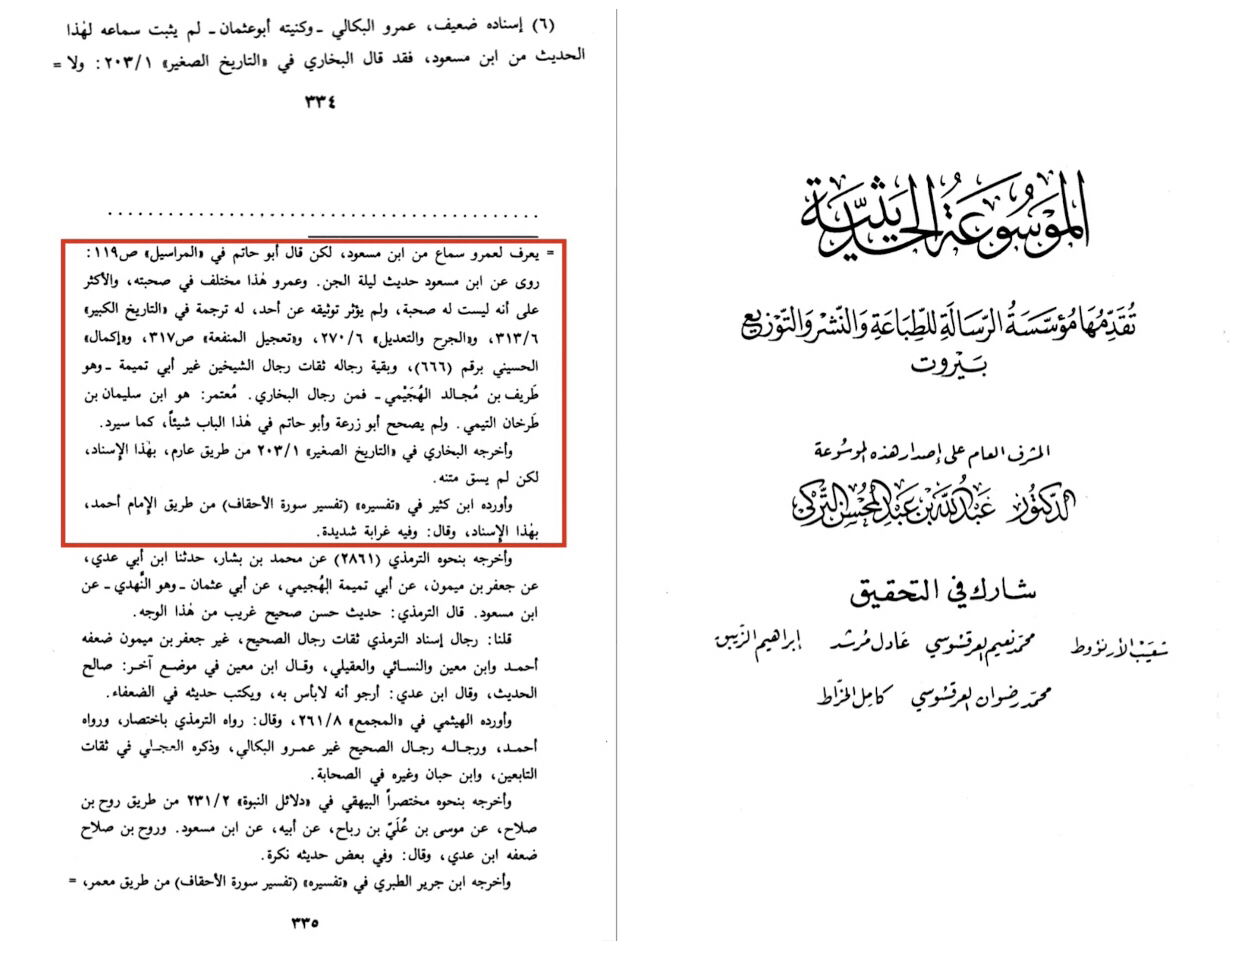 (٦) إسناده ضعيف، عمرو البكالي ـ وكنيته أبوعثمان ـ لم يثبت سماعه لهٰذا
الحديث من ابن مسعود، فقد قال البخاري في «التاريخ الصغير» ٢٠٣/١: ولا =
٣٣٤
= يعرف لعمرو سماع من ابن مسعود، لكن قال أبو حاتم في «المراسيل» ص١١٩:
روى عن ابن مسعود حديث ليلة الجن. وعمرو هٰذا مختلف في صحبته، والأكثر
على أنه ليست له صحبة، ولم يؤثر توثيقه عن أحد، له ترجمة في «التاريخ الكبير»
٣١٣/٦، و«الجرح والتعديل» ٢٧٠/٦، و«تعجيل المنفعة» ص٣١٧، و«إكمال»
الحسيني برقم (٦٦٦)، وبقية رجاله ثقات رجال الشيخين غير أبي تميمة ـ وهو
طَريف بن مُجالد الهُجَيْمي ـ فمن رجال البخاري. مُعتمر: هو ابن سليمان بن
طَرخان التيمي. ولم يصحح أبو زرعة وأبو حاتم في هٰذا الباب شيئاً، كما سيرد.
وأخرجه البخاري في «التاريخ الصغير» ٢٠٣/١ من طريق عارم، بهٰذا الإسناد،
لكن لم يسق متنه.
وأورده ابن كثير في «تفسيره» (تفسير سورة الأحقاف) من طريق الإمام أحمد،
بهٰذا الإسناد، وقال: وفيه غرابة شديدة.
وأخرجه بنحوه الترمذي (٢٨٦١) عن محمد بن بشار، حدثنا ابن أبي عدي،
عن جعفر بن ميمون، عن أبي تميمة الهُجيمي، عن أبي عثمان ـ وهو النَّهدي ـ عن
ابن مسعود. قال الترمذي: حديث حسن صحيح غريب من هٰذا الوجه.
قلنا: رجال إسناد الترمذي ثقات رجال الصحيح، غير جعفر بن ميمون ضعفه
أحمد وابن معين والنسائي والعقيلي، وقال ابن معين في موضع آخر: صالح
الحديث، وقال ابن عدي: أرجو أنه لابأس به، ويكتب حديثه في الضعفاء.
وأورده الهيثمي في «المجمع» ٢٦١/٨، وقال: رواه الترمذي باختصار، ورواه
أحمد، ورجاله رجال الصحيح غير عمرو البكالي، وذكره العجلي في ثقات
التابعين، وابن حبان وغيره في الصحابة.
وأخرجه بنحوه مختصراً البيهقي في «دلائل النبوة» ٢٣١/٢ من طريق روح بن
صلاح، عن موسى بن عُلَيّ بن رباح، عن أبيه، عن ابن مسعود. وروح بن صلاح
ضعفه ابن عدي، وقال: وفي بعض حديثه نكرة.
وأخرجه ابن جرير الطبري في «تفسيره» (تفسير سورة الأحقاف) من طريق معمر، =
٣٣٥
المَوْسُوعَةُ الحَدِيثِيَّة
تُقَدِّمُهَا مُؤَسَّسَةُ الرِّسَالَةِ لِلطِّبَاعَةِ وَالنَّشْرِ وَالتَّوْزِيعِ
بَيْرُوت
المشرف العام على إصدار هذه الموسُوعة
الدكتور عَبدُ الله بن عَبد المُحسِن التركي
شارك في التحقيق
شعَيبْ الأرنؤوط محمد نعيم العرقسُوسي عَادل مُرشد إبراهيم الزيبق
محمّد رضوان العرقسُوسي كامِل الخرّاط